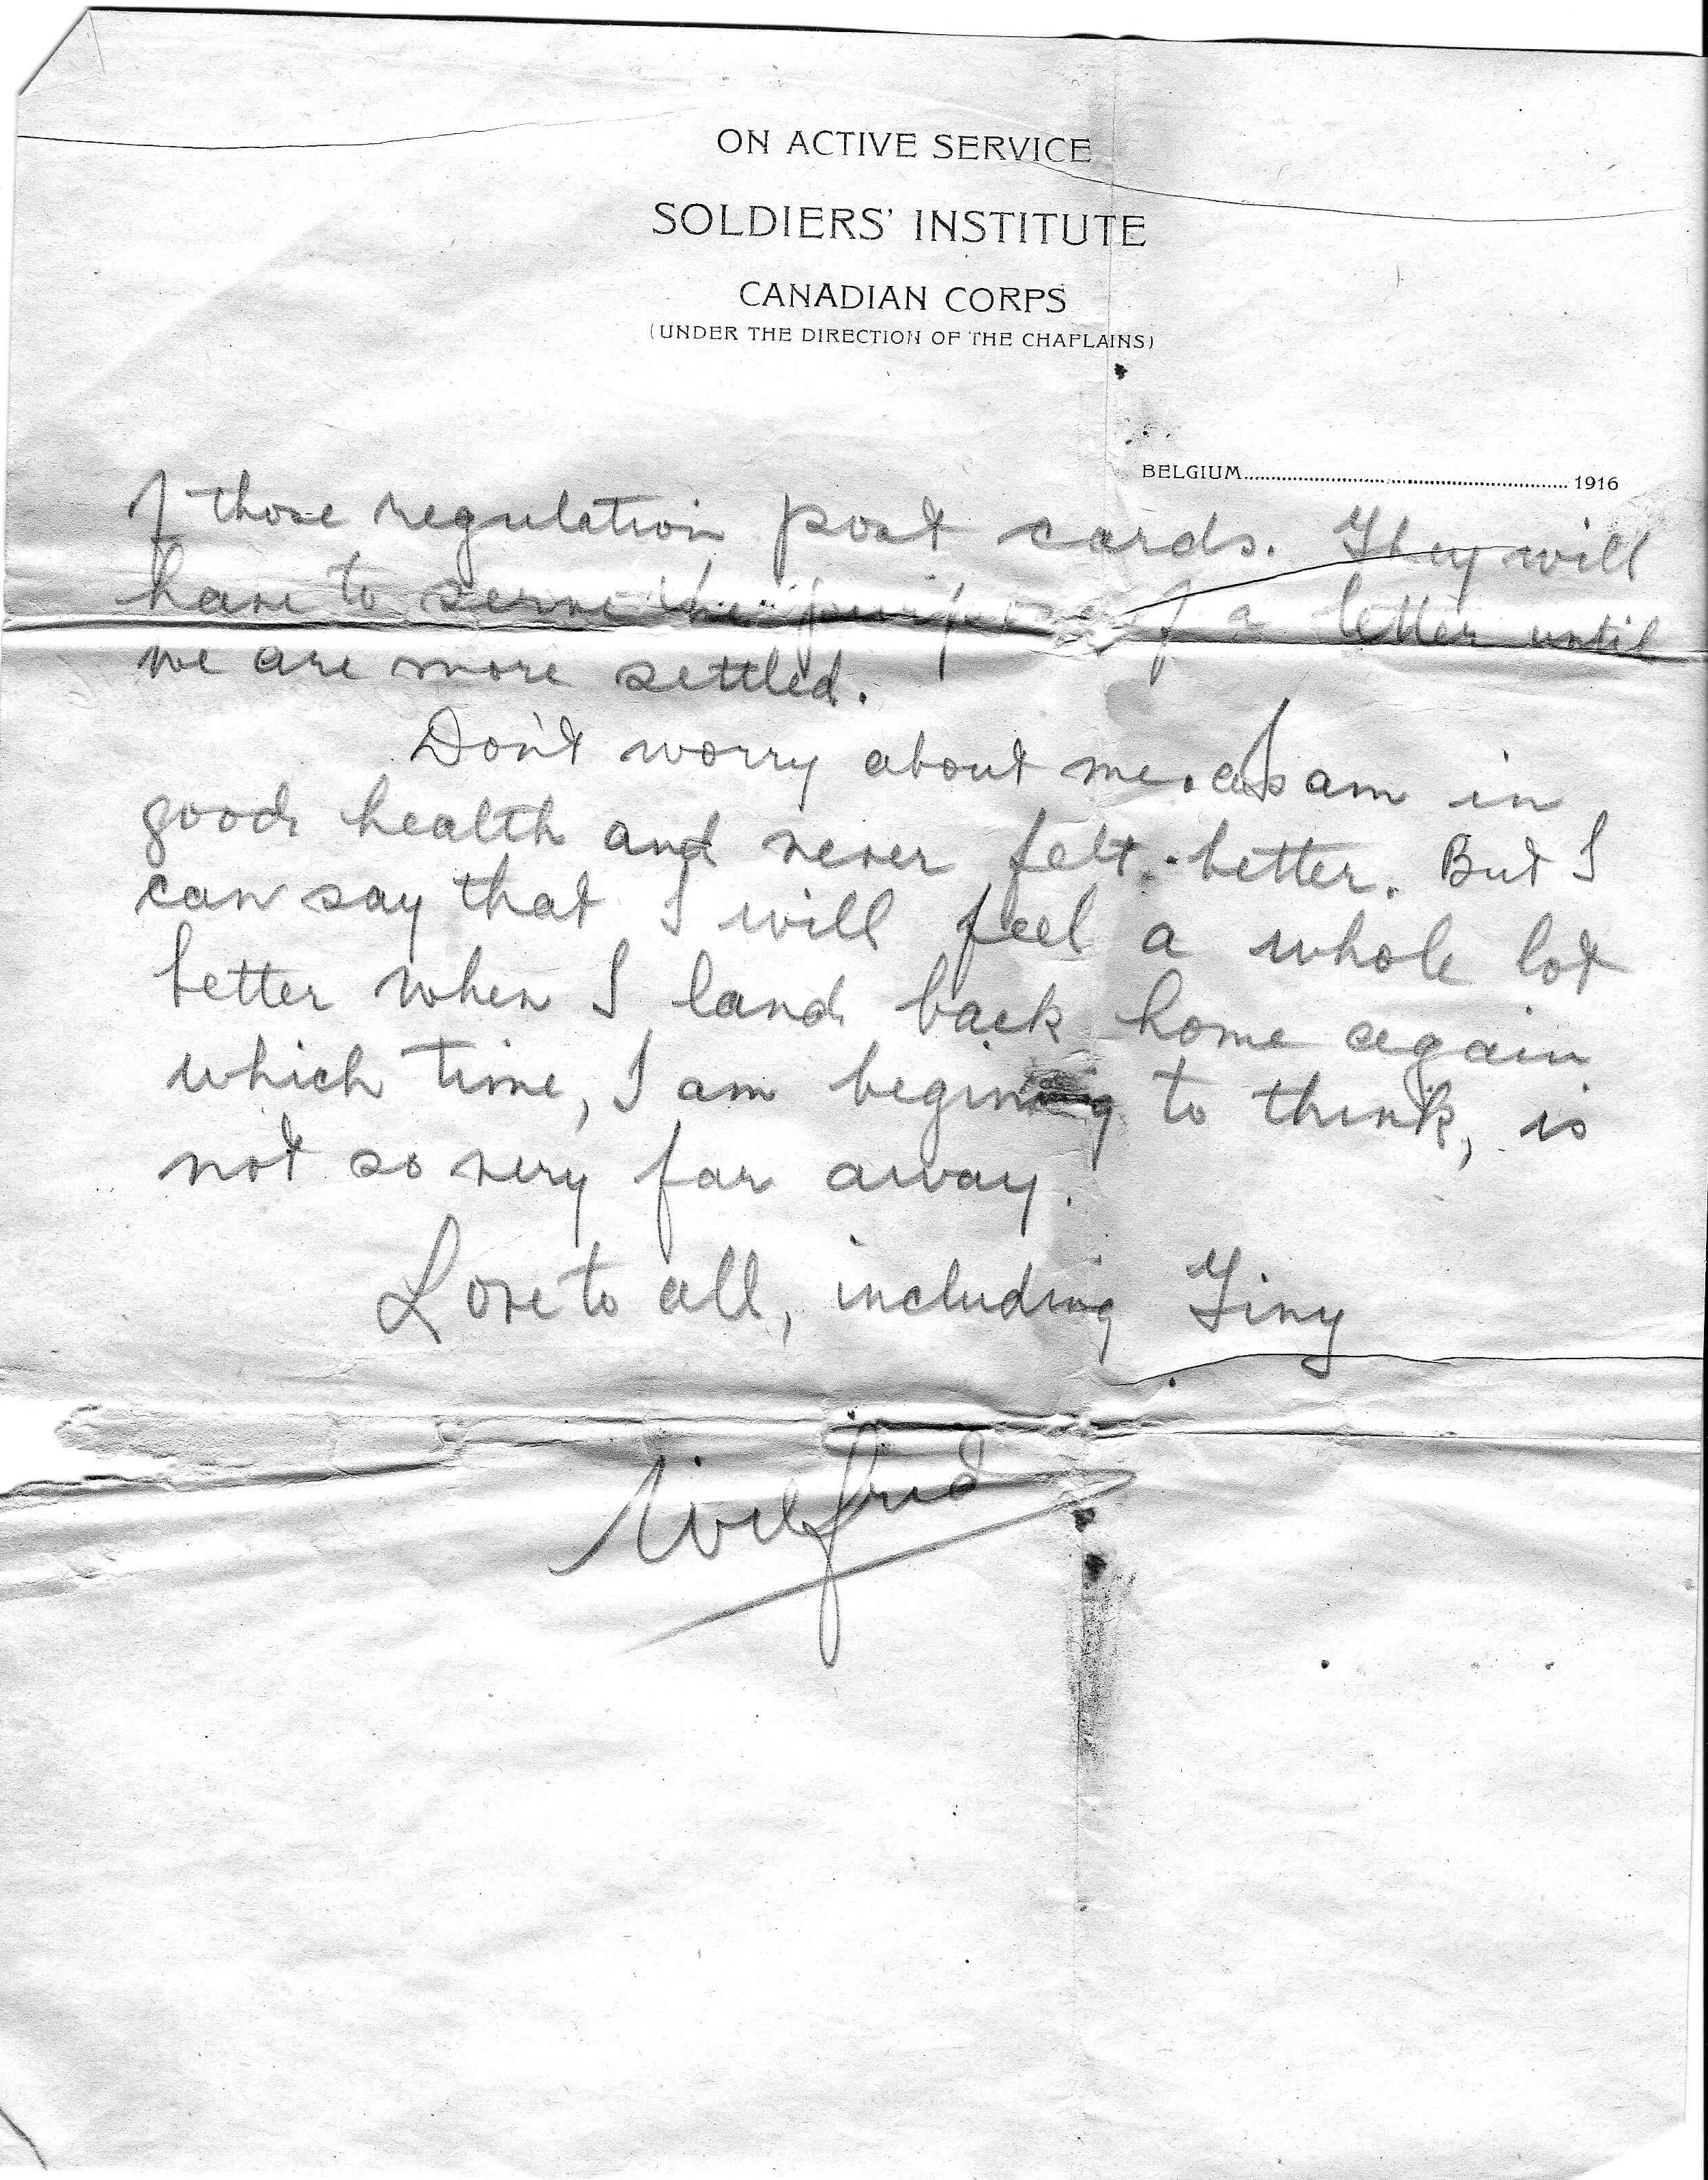 ON ACTIVE SERVICE
SOLDIERS' INSTITUTE
CANADIAN CORPS
(UNDER THE DIRECTION OF THE CHAPLAINS)
BELGIUM 1916
of those regulation post cards. They will
have to serve the purpose of a letter until
we are more settled.
Don't worry about me. I am in
good health and never felt better. But I
can say that I will feel a whole lot
better when I land back home again
which time, I am begining to think, is
not so very far away.
Love to all, including Tiny
Wilfrid